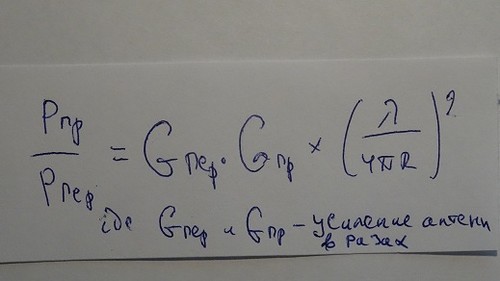 Pпр / Pпер = Gпер · Gпр × (λ / 4πR)²
где Gпер и Gпр – усиление антенн
в разах